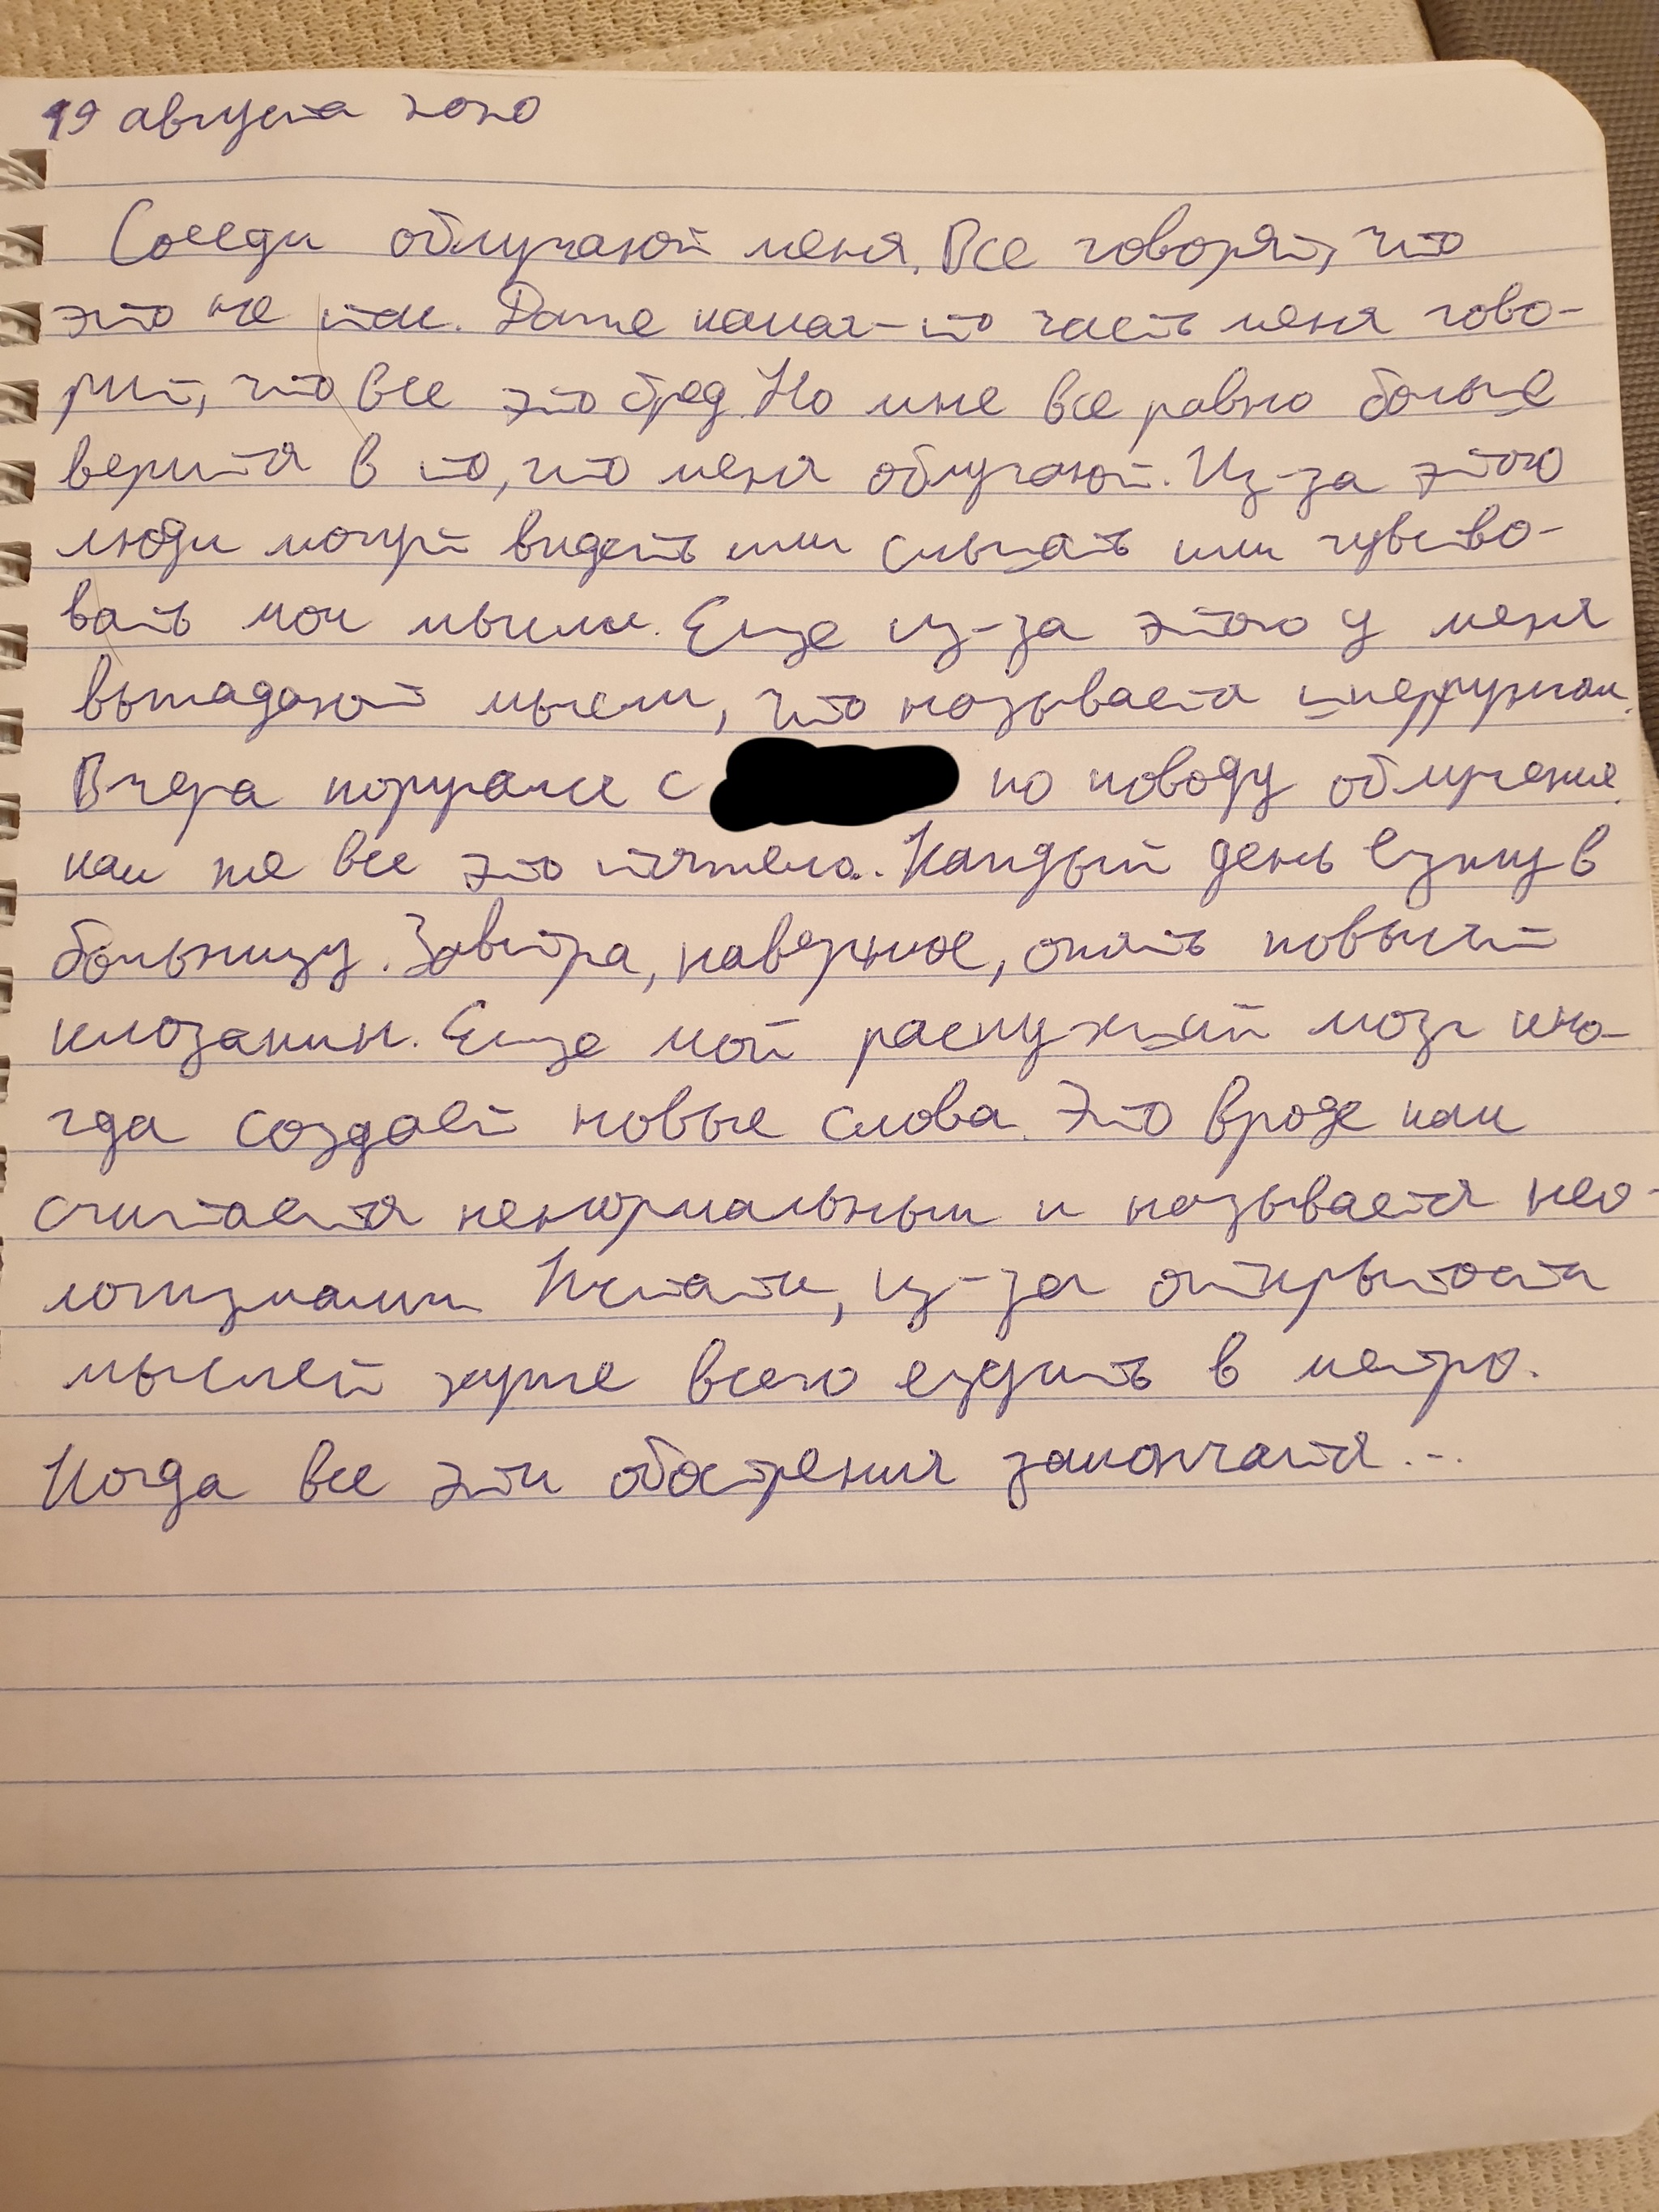 19 августа 2020
Соседи облучают меня. Все говорят, что
это не так. Даже какая-то часть меня гово-
рит, что все это бред. Но мне все равно больше
верится в то, что меня облучают. Из-за этого
люди могут видеть или слышать или чувство-
вать мои мысли. Еще из-за этого у меня
выпадают мысли, что называется шперрунгом.
Вчера поругался с по поводу облучения.
как же все это тяжело. Каждый день езжу в
больницу. Завтра, наверное, опять повысят
клозапин. Еще мой распухший мозг ино-
гда создает новые слова. Это вроде как
считается ненормальным и называется нео-
логизмами. Кстати, из-за открытости
мыслей хуже всего ездить в метро.
Когда все эти обострения закончатся...